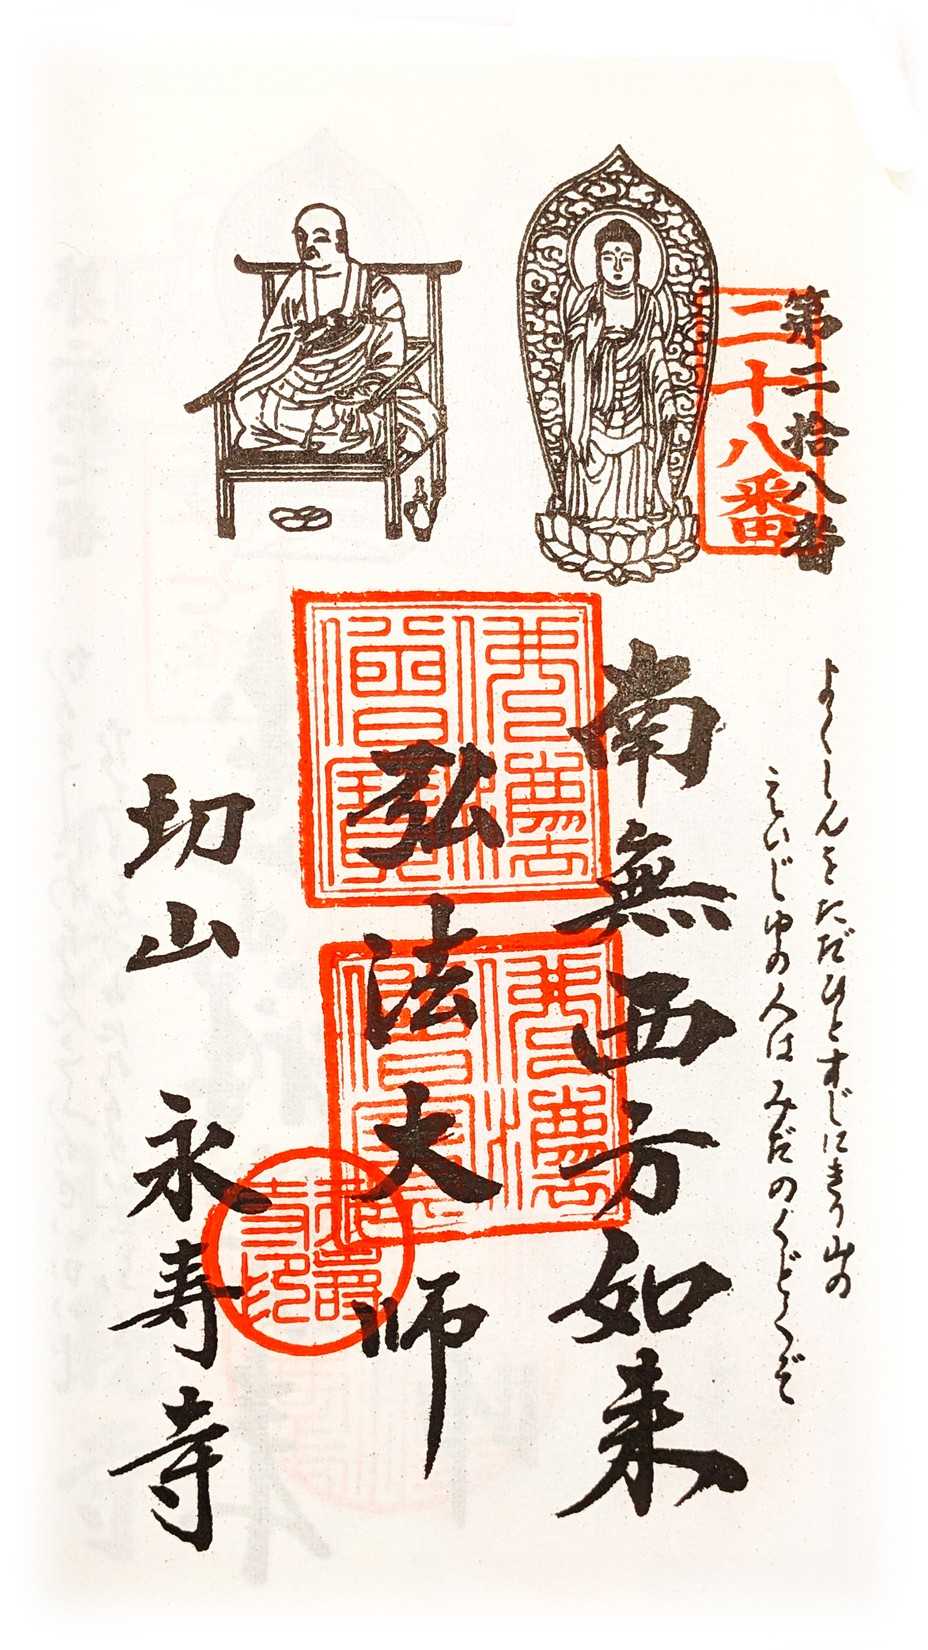 第二拾八番
二十八番
よくしんをただひとすじにきり山の
えいじゆの人はみだのくどくぞ
南無西方如来
佛灋僧寶
佛灋僧寶
弘法大師
永壽寺印
切山 永寿寺